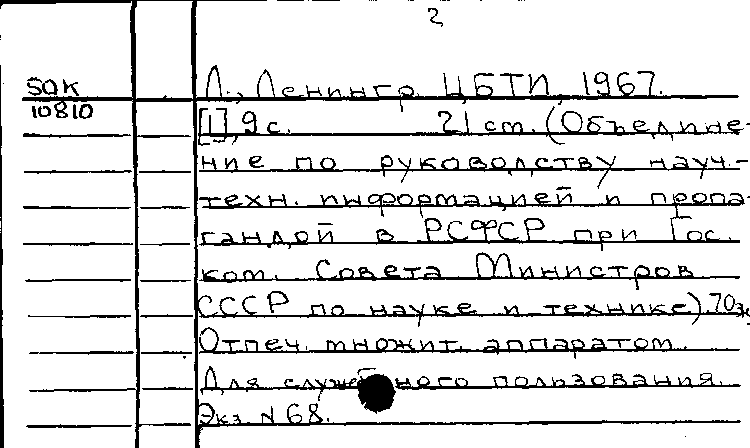 2
50К Л., Ленингр. ЦБТИ, 1967.
10810 [1], 9 с. 21 см. (Объедине-
ние по руководству науч.-
техн. информацией и пропа-
гандой в РСФСР при Гос.
ком. Совета Министров
СССР по науке и технике). 70 эк
Отпеч. множит. аппаратом.
Для служебного пользования.
Экз. N 68.